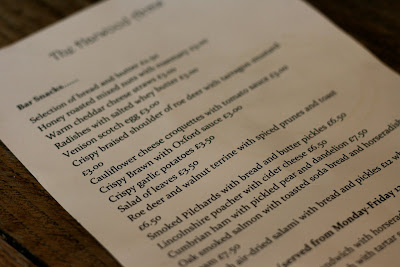 The Harwood Arms
Bar Snacks......
Selection of bread and butter £1.50
Honey roasted mixed nuts with rosemary £3.00
Warm cheddar cheese straws £3.00
Radishes with salted whey butter £3.00
Venison scotch egg £3.00
Crispy braised shoulder of roe deer with tarragon mustard
£3.00
Cauliflower cheese croquettes with tomato sauce £3.00
Crispy Brawn with Oxford sauce £3.00
Crispy garlic potatoes £3.50
Salad of leaves £3.50
Roe deer and walnut terrine with spiced prunes and toast
£6.50
Smoked Pilchards with bread and butter pickles £6.50
Lincolnshire poacher with cider cheese £6.50
Cumbrian ham with pickled pear and dandelion £7.50
Oak smoked salmon with toasted soda bread and horseradish
£7.50
air-dried salami with bread and pickles £12
served from Monday-Friday 12
with horseradish
with tartar